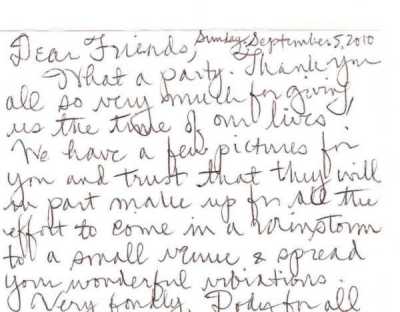 Dear Friends, Sunday, September 5, 2010
What a party. Thank you
all so very much for giving
us the time of our lives.
We have a few pictures for
you and trust that they will
in part make up for all the
effort to come in a rainstorm
to a small venue & spread
your wonderful vibrations.
Very fondly, Dody for all